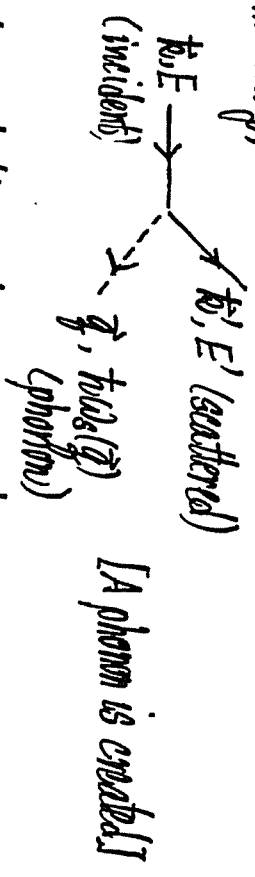 k⃗, E
(incident)
k⃗', E' (scattered)
q⃗, ħωs(q⃗)
(phonon)
[A phonon is created]